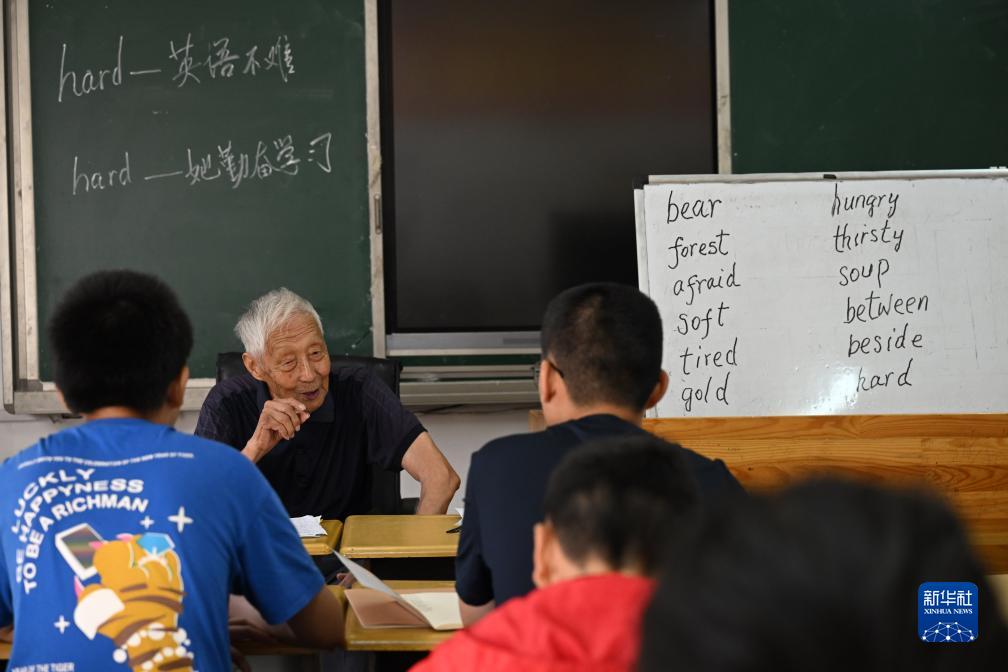 hard — 英语不难
hard — 她勤奋学习
bear
forest
afraid
soft
tired
gold
hungry
thirsty
soup
between
beside
hard
LUCKLY
BE HAPPYNESS
TO BE A RICHMAN
YEAR OF THE TIGER
新华社
XINHUA NEWS